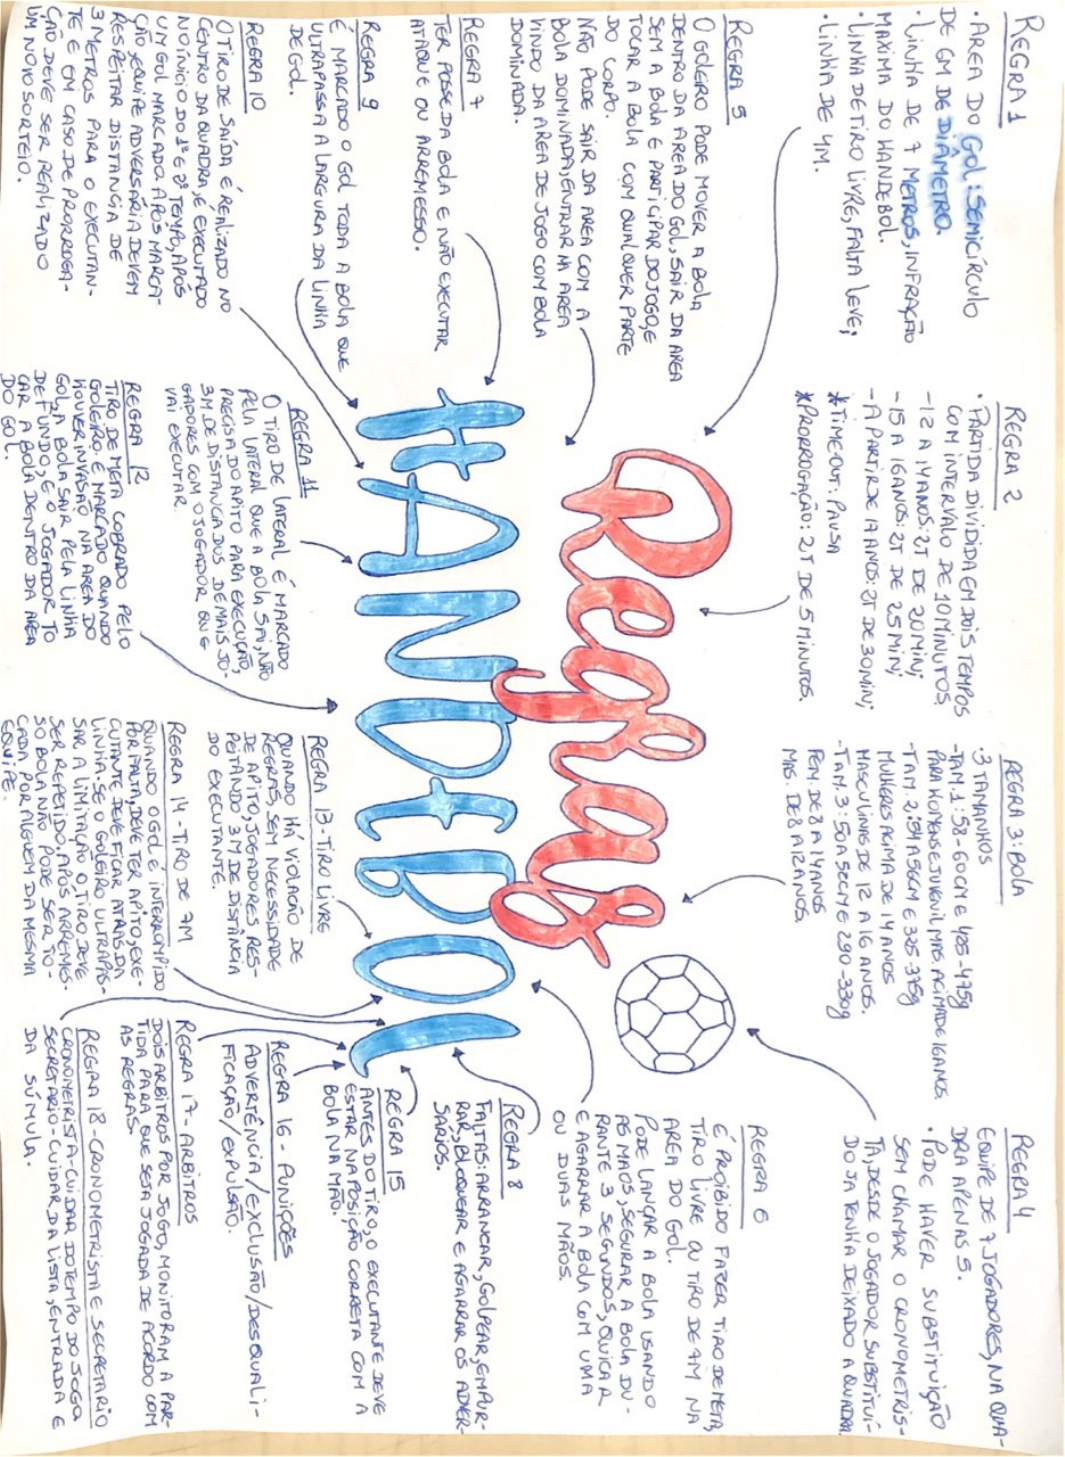 REGRA 1
• AREA DO GOL: SEMICÍRCULO
DE 6M DE DIÂMETRO.
• LINHA DE 7 METROS, INFRAÇÃO
MAXIMA DO HANDEBOL.
• LINHA DE TIRO LIVRE, FALTA LEVE;
• LINHA DE 4M.
REGRA 2
• PARTIDA DIVIDIDA EM DOIS TEMPOS
COM INTERVALO DE 10 MINUTOS.
- 12 A 14 ANOS: 2T DE 20 MIN;
- 15 A 16 ANOS: 2T DE 25 MIN;
- A PARTIR DE 17 ANOS: 2T DE 30 MIN;
* TIMEOUT: PAUSA
* PRORROGAÇÃO: 2T DE 5 MINUTOS.
REGRA 3: BOLA
• 3 TAMANHOS
- TAM. 1: 58 - 60CM E 425 - 475g
PARA HOMENS E JUVENIL MAS. ACIMA DE 16 ANOS.
- TAM. 2: 54 A 56CM E 325-375g
MULHERES ACIMA DE 14 ANOS
MASCULINO DE 12 A 16 ANOS.
- TAM. 3: 50 A 52CM E 290-330g
FEM. DE 8 A 14 ANOS
MAS. DE 8 A 12 ANOS.
REGRA 4
EQUIPE DE 7 JOGADORES, NA QUA-
DRA APENAS 5.
• PODE HAVER SUBSTITUIÇÃO
SEM CHAMAR O CRONOMETRIS-
TA, DESDE O JOGADOR SUBSTITUÍ-
DO JA TENHA DEIXADO A QUADRA.
REGRA 5
O GOLEIRO PODE MOVER A BOLA
DENTRO DA AREA DO GOL, SAIR DA AREA
SEM A BOLA E PARTICIPAR DO JOGO, E
TOCAR A BOLA COM QUALQUER PARTE
DO CORPO.
NÃO PODE SAIR DA AREA COM A
BOLA DOMINADA, ENTRAR NA AREA
VINDO DA AREA DE JOGO COM BOLA
DOMINADA.
REGRA 6
É PROIBIDO FAZER TIRO DE META,
TIRO LIVRE OU TIRO DE 7M NA
AREA DO GOL.
PODE LANÇAR A BOLA USANDO
AS MAOS, SEGURAR A BOLA DU-
RANTE 3 SEGUNDOS, QUICAR
E AGARRAR A BOLA COM UMA
OU DUAS MÃOS.
REGRA 7
TER POSSE DA BOLA E NÃO EXECUTAR
ATAQUE OU ARREMESSO.
Regras
HANDEBOl
REGRA 8
FALTAS: ARRANCAR, GOLPEAR, EMPUR-
RAR, BLOQUEAR E AGARRAR OS ADVER-
SÁRIOS.
REGRA 9
É MARCADO O GOL TODA A BOLA QUE
ULTRAPASSA A LARGURA DA LINHA
DE GOL.
REGRA 10
O TIRO DE SAÍDA É REALIZADO NO
CENTRO DA QUADRA, E EXECUTADO
NO INÍCIO DO 1º E 2º TEMPO, APÓS
UM GOL MARCADO. APÓS MARCA-
ÇÃO, EQUIPE ADVERSÁRIA DEVEM
RESPEITAR DISTANCIA DE
3 METROS PARA O EXECUTAN-
TE E EM CASO DE PRORROGA-
ÇÃO DEVE SER REALIZADO
UM NOVO SORTEIO.
REGRA 11
O TIRO DE LATERAL É MARCADO
PELA LATERAL QUE A BOLA SAI, NÃO
PRECISA DO APITO PARA EXECUÇÃO,
3M. DE DISTANCIA DOS DEMAIS JO-
GADORES COM O JOGADOR QUE
VAI EXECUTAR.
REGRA 12
TIRO DE META COBRADO PELO
GOLEIRO. É MARCADO QUANDO
HOUVER INVASÃO NA AREA DO
GOL, A BOLA SAIR PELA LINHA
DE FUNDO, E O JOGADOR TO
CAR A BOLA DENTRO DA AREA
DO GOL.
REGRA 13 - TIRO LIVRE
QUANDO HÁ VIOLAÇÃO DE
REGRAS, SEM NECESSIDADE
DE APITO, JOGADORES RES-
PEITANDO 3M DE DISTÂNCIA
DO EXECUTANTE.
REGRA 14 - TIRO DE 7M
QUANDO O GOL É INTERROMPIDO
POR FALTA, DEVE TER APITO, EXE-
CUTANTE DEVE FICAR ATRAS DA
LINHA. SE O GOLEIRO ULTRAPAS-
SAR A LIMITAÇÃO O TIRO DEVE
SER REPETIDO, APÓS ARREMES-
SO BOLA NÃO PODE SER TO-
CADA POR ALGUEM DA MESMA
EQUIPE.
REGRA 15
ANTES DO TIRO, O EXECUTANTE DEVE
ESTAR NA POSIÇÃO CORRETA COM A
BOLA NA MÃO.
REGRA 16 - PUNIÇÕES
ADVERTÊNCIA/EXCLUSÃO/DESQUALI-
FICAÇÃO/EXPULSÃO.
REGRA 17 - ARBITROS
DOIS ARBITROS POR JOGO, MONITORAM A PAR-
TIDA PARA QUE SEJA JOGADA DE ACORDO COM
AS REGRAS.
REGRA 18 - CRONOMETRISTA E SECRETARIO
CRONOMETRISTA - CUIDAR DO TEMPO DO JOGO
SECRETARIO - CUIDAR DA LISTA, ENTRADA E
DA SÚMULA.